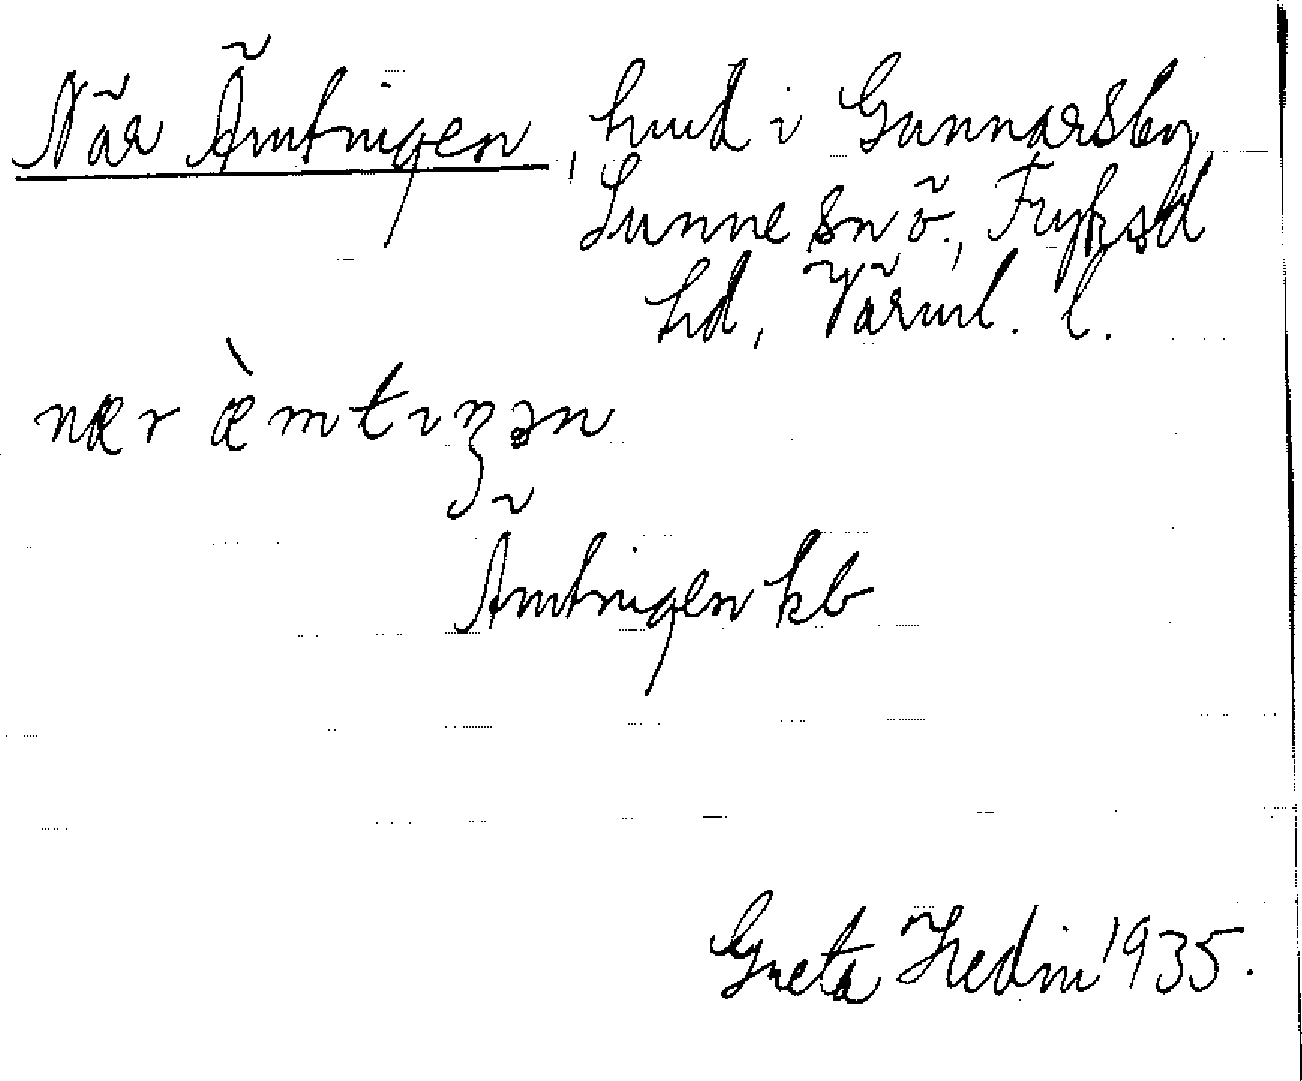 När Ämtnigen, hmd i Gunnarsby,
Sunne sn ö., Fryksd
hd, Värml. l.
nær æ̀mtıŋən
Ämtnigen kb
Greta Hedin 1935.